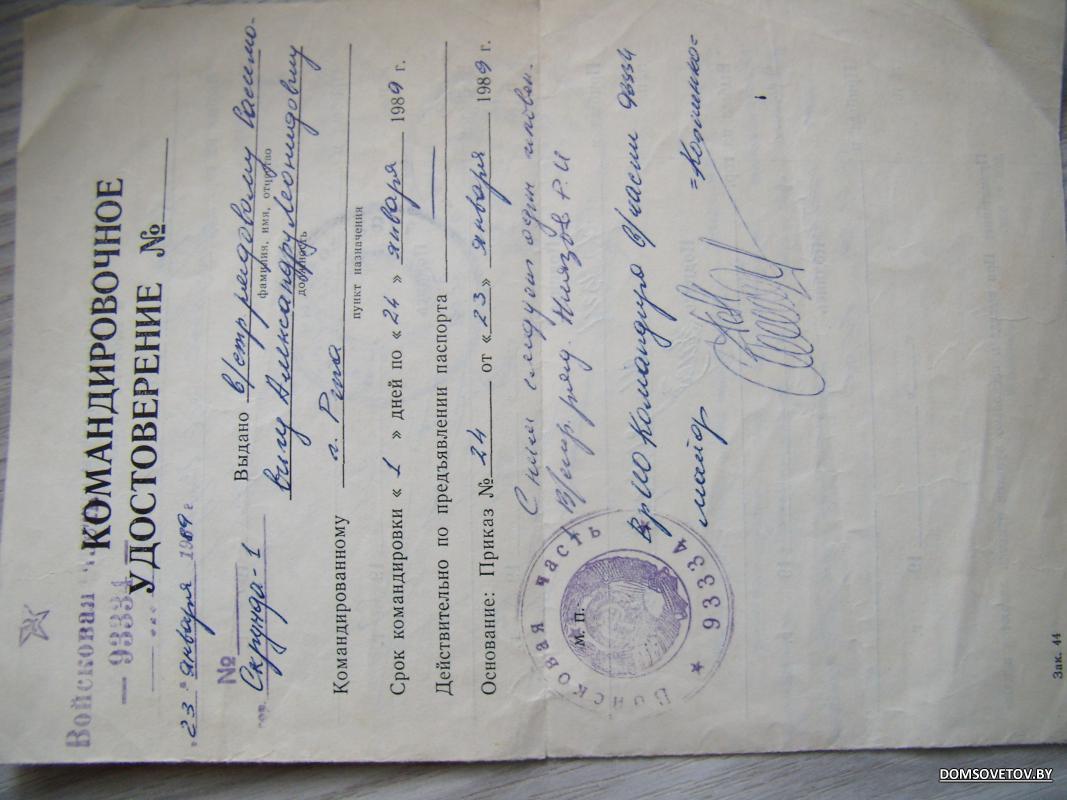 Войсковая часть
— 93334 —
КОМАНДИРОВОЧНОЕ
УДОСТОВЕРЕНИЕ №
"23" января 1989 г
№
гор. Скрунда-1
Выдано в/стр рядовому
фамилия, имя, отчество
вичу Александру Леонидовичу
должность
г. Рига
Командированному
пункт назначения
Срок командировки « 1 » дней по « 24 » января 1989 г.
Действительно по предъявлении паспорта —
Основание: Приказ № 24 от « 23 » января 1989 г.
С ним следует один человек.
В/стр. ряд. Ниязов Р. И
М. П.
Войсковая часть
★ 93334 ★
Врио командира в/части 93334
майор =Кофиенко=
Зак. 44
DOMSOVETOV.BY